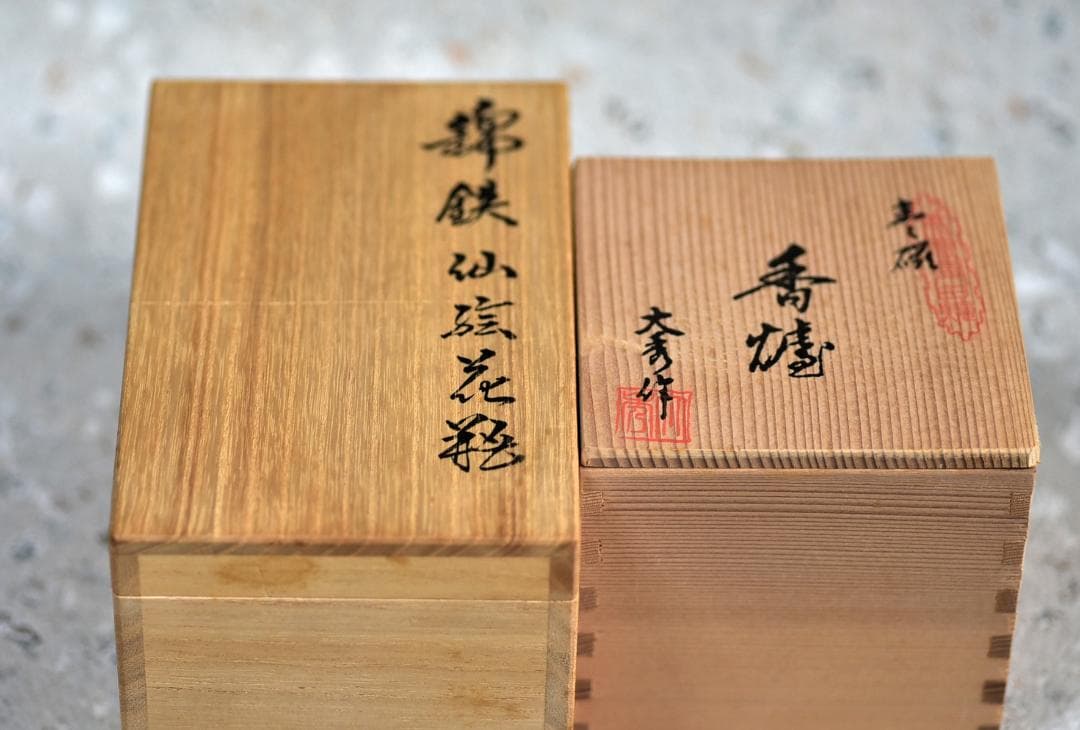 錦鉄仙絵花瓶
香爐
大秀作